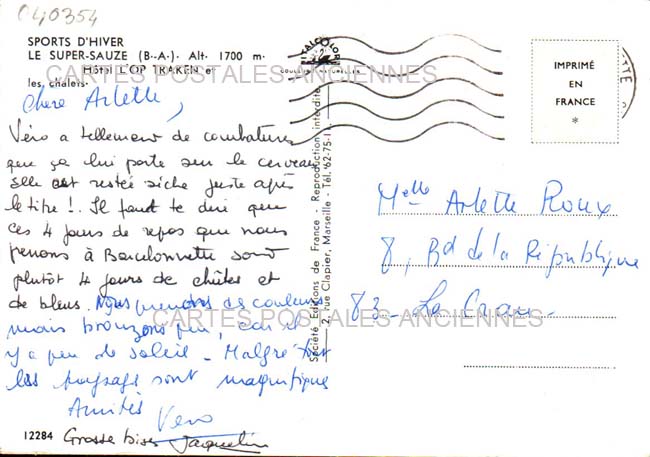 040354
SPORTS D'HIVER
LE SUPER-SAUZE (B.-A.) - Alt. 1700 m.
Hôtel L'OP TRAKEN et
les chalets.
CARTES POSTALES ANCIENNES
Chère Arlette,
Véro a tellement de courbatures
que ça lui porte sur le cerveau
elle est restée sèche juste après
le titre !. Il faut te dire que
ces 4 jours de repos que nous
prenons à Barcelonnette sont
plutôt 4 jours de chûtes et
de bleus. Nous prenons des couleurs
mais bronzons peu, car il
y a peu de soleil - Malgré tout
les paysages sont magnifiques
Amitiés
Véro
Grosse bises Jacqueline
12284
CARTES POSTALES ANCIENNES
Société Editions de France - Reproduction interdite
2, rue Clapier, Marseille - Tél. 62-75-1
ITALCOLOR
COULEURS NATURELLES
IMPRIMÉ
EN
FRANCE
*
Melle Arlette Roux
8, Bd de la République
83 - La Crau